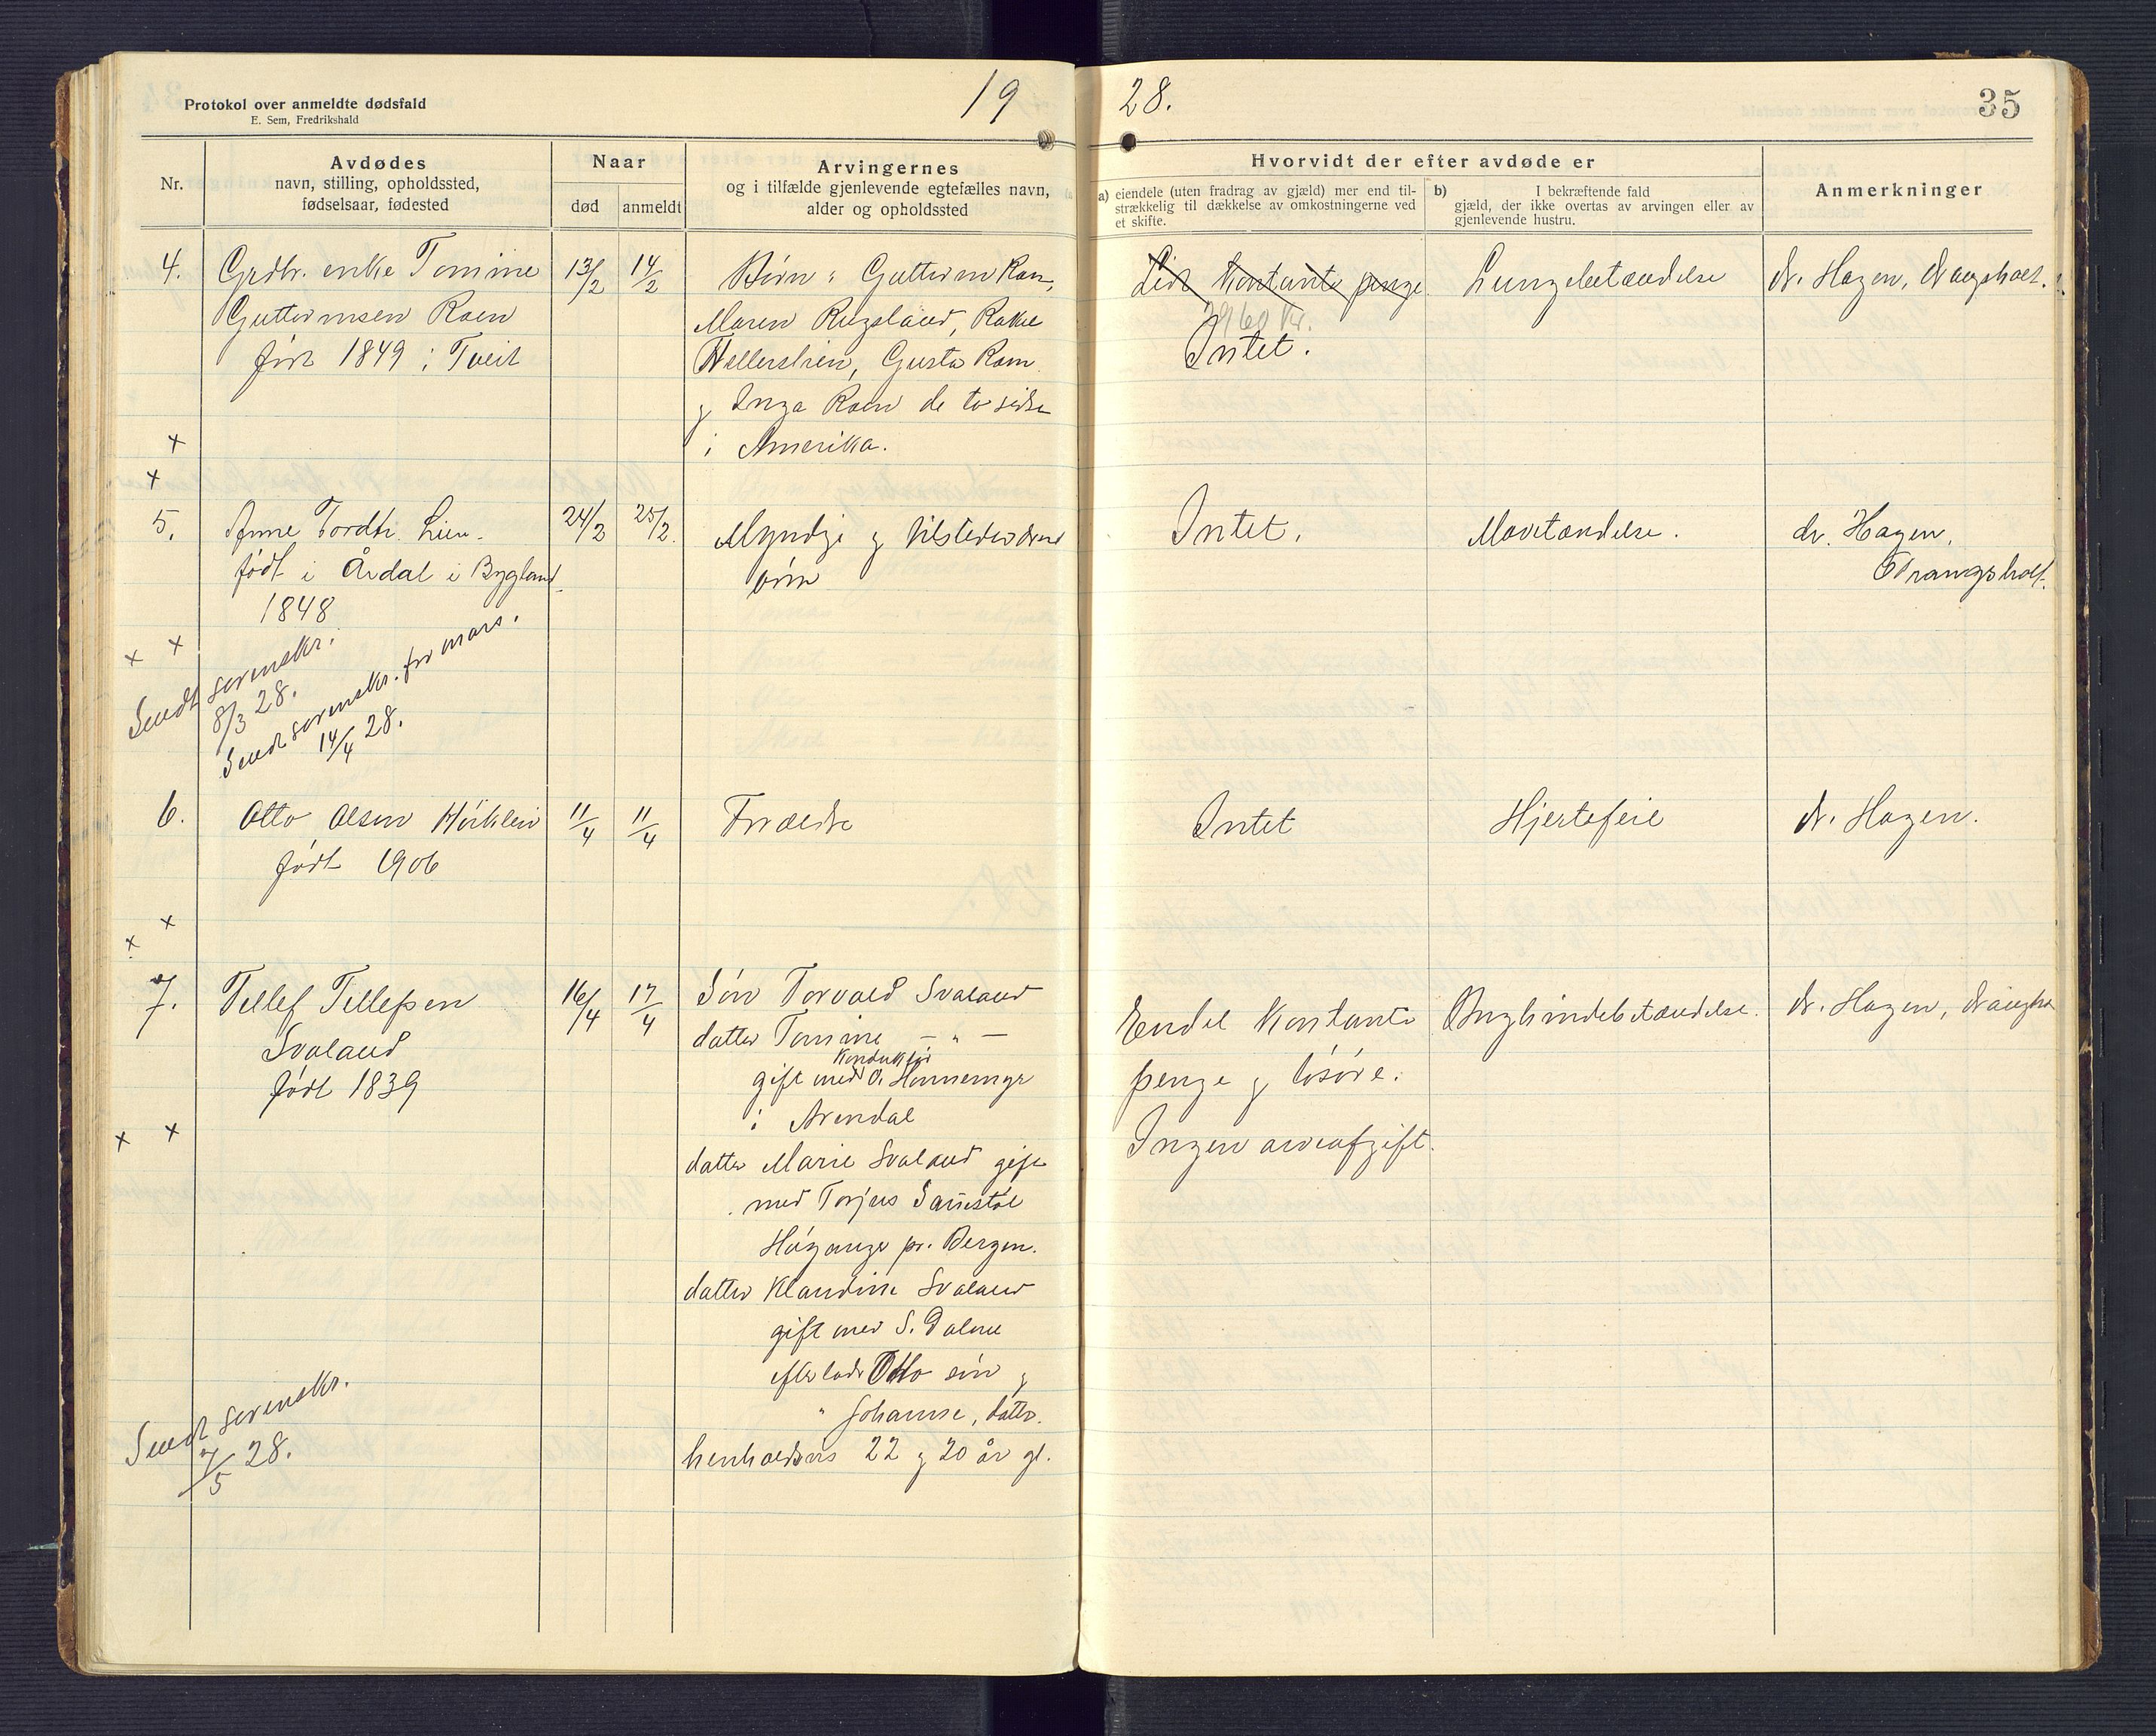 Protokol over anmeldte dødsfald
E. Sem, Fredrikshald
19 28.
35
Nr.
Avdødes
navn, stilling, opholdssted,
fødselsaar, fødested
Naar
død
anmeldt
Arvingernes
og i tilfælde gjenlevende egtefælles navn,
alder og opholdssted
Hvorvidt der efter avdøde er
a) eiendele (uten fradrag av gjæld) mer end til-
strækkelig til dækkelse av omkostningerne ved
et skifte.
b) I bekræftende fald
gjæld, der ikke overtas av arvingen eller av
gjenlevende hustru.
Anmerkninger
4.
Grdbr. enke Tomine
Guttormsen Roen
født 1849 i Tveit
13/2
14/2
Børn: Guttorm Roen,
Maren Rugsland, Rakel
Gusta Roen
og Inga Roen de to sidste
i Amerika.
Lidt kontante penge
Intet.
Lungebetændelse
dr. Hagen, Drangsholt.
5.
Anne Tordtr. Lien.
født i Årdal i Bygland
1848
24/2
25/2.
Myndige og tilstedeværende
børn
Intet.
dr. Hagen,
Drangsholt.
Sendt sorenskr.
8/3 28.
Sendt sorenskr. for mars.
14/4 28.
6.
Otto Olsen
født 1906
11/4
11/4
Forældre
Intet
Hjertefeil
dr. Hagen.
7.
Tellef Tellefsen
Svaland
født 1839
16/4
17/4
Søn Torvald Svaland
datter Tomine — " —
konduktør
gift med O. Honnemyr
i Arendal
datter Marie Svaland gift
med Torjus
Høyanger pr. Bergen.
datter Klaudine Svaland
gift med S. Dalene
efterladt Otto søn og
" Johanne, datter.
henholdsvis 22 og 20 år gl.
Endel kontante
penge og løsøre.
Ingen arveafgift.
Bryshindebetændelse.
dr. Hagen, Drangsho
Sendt sorenskr.
7/5 28.